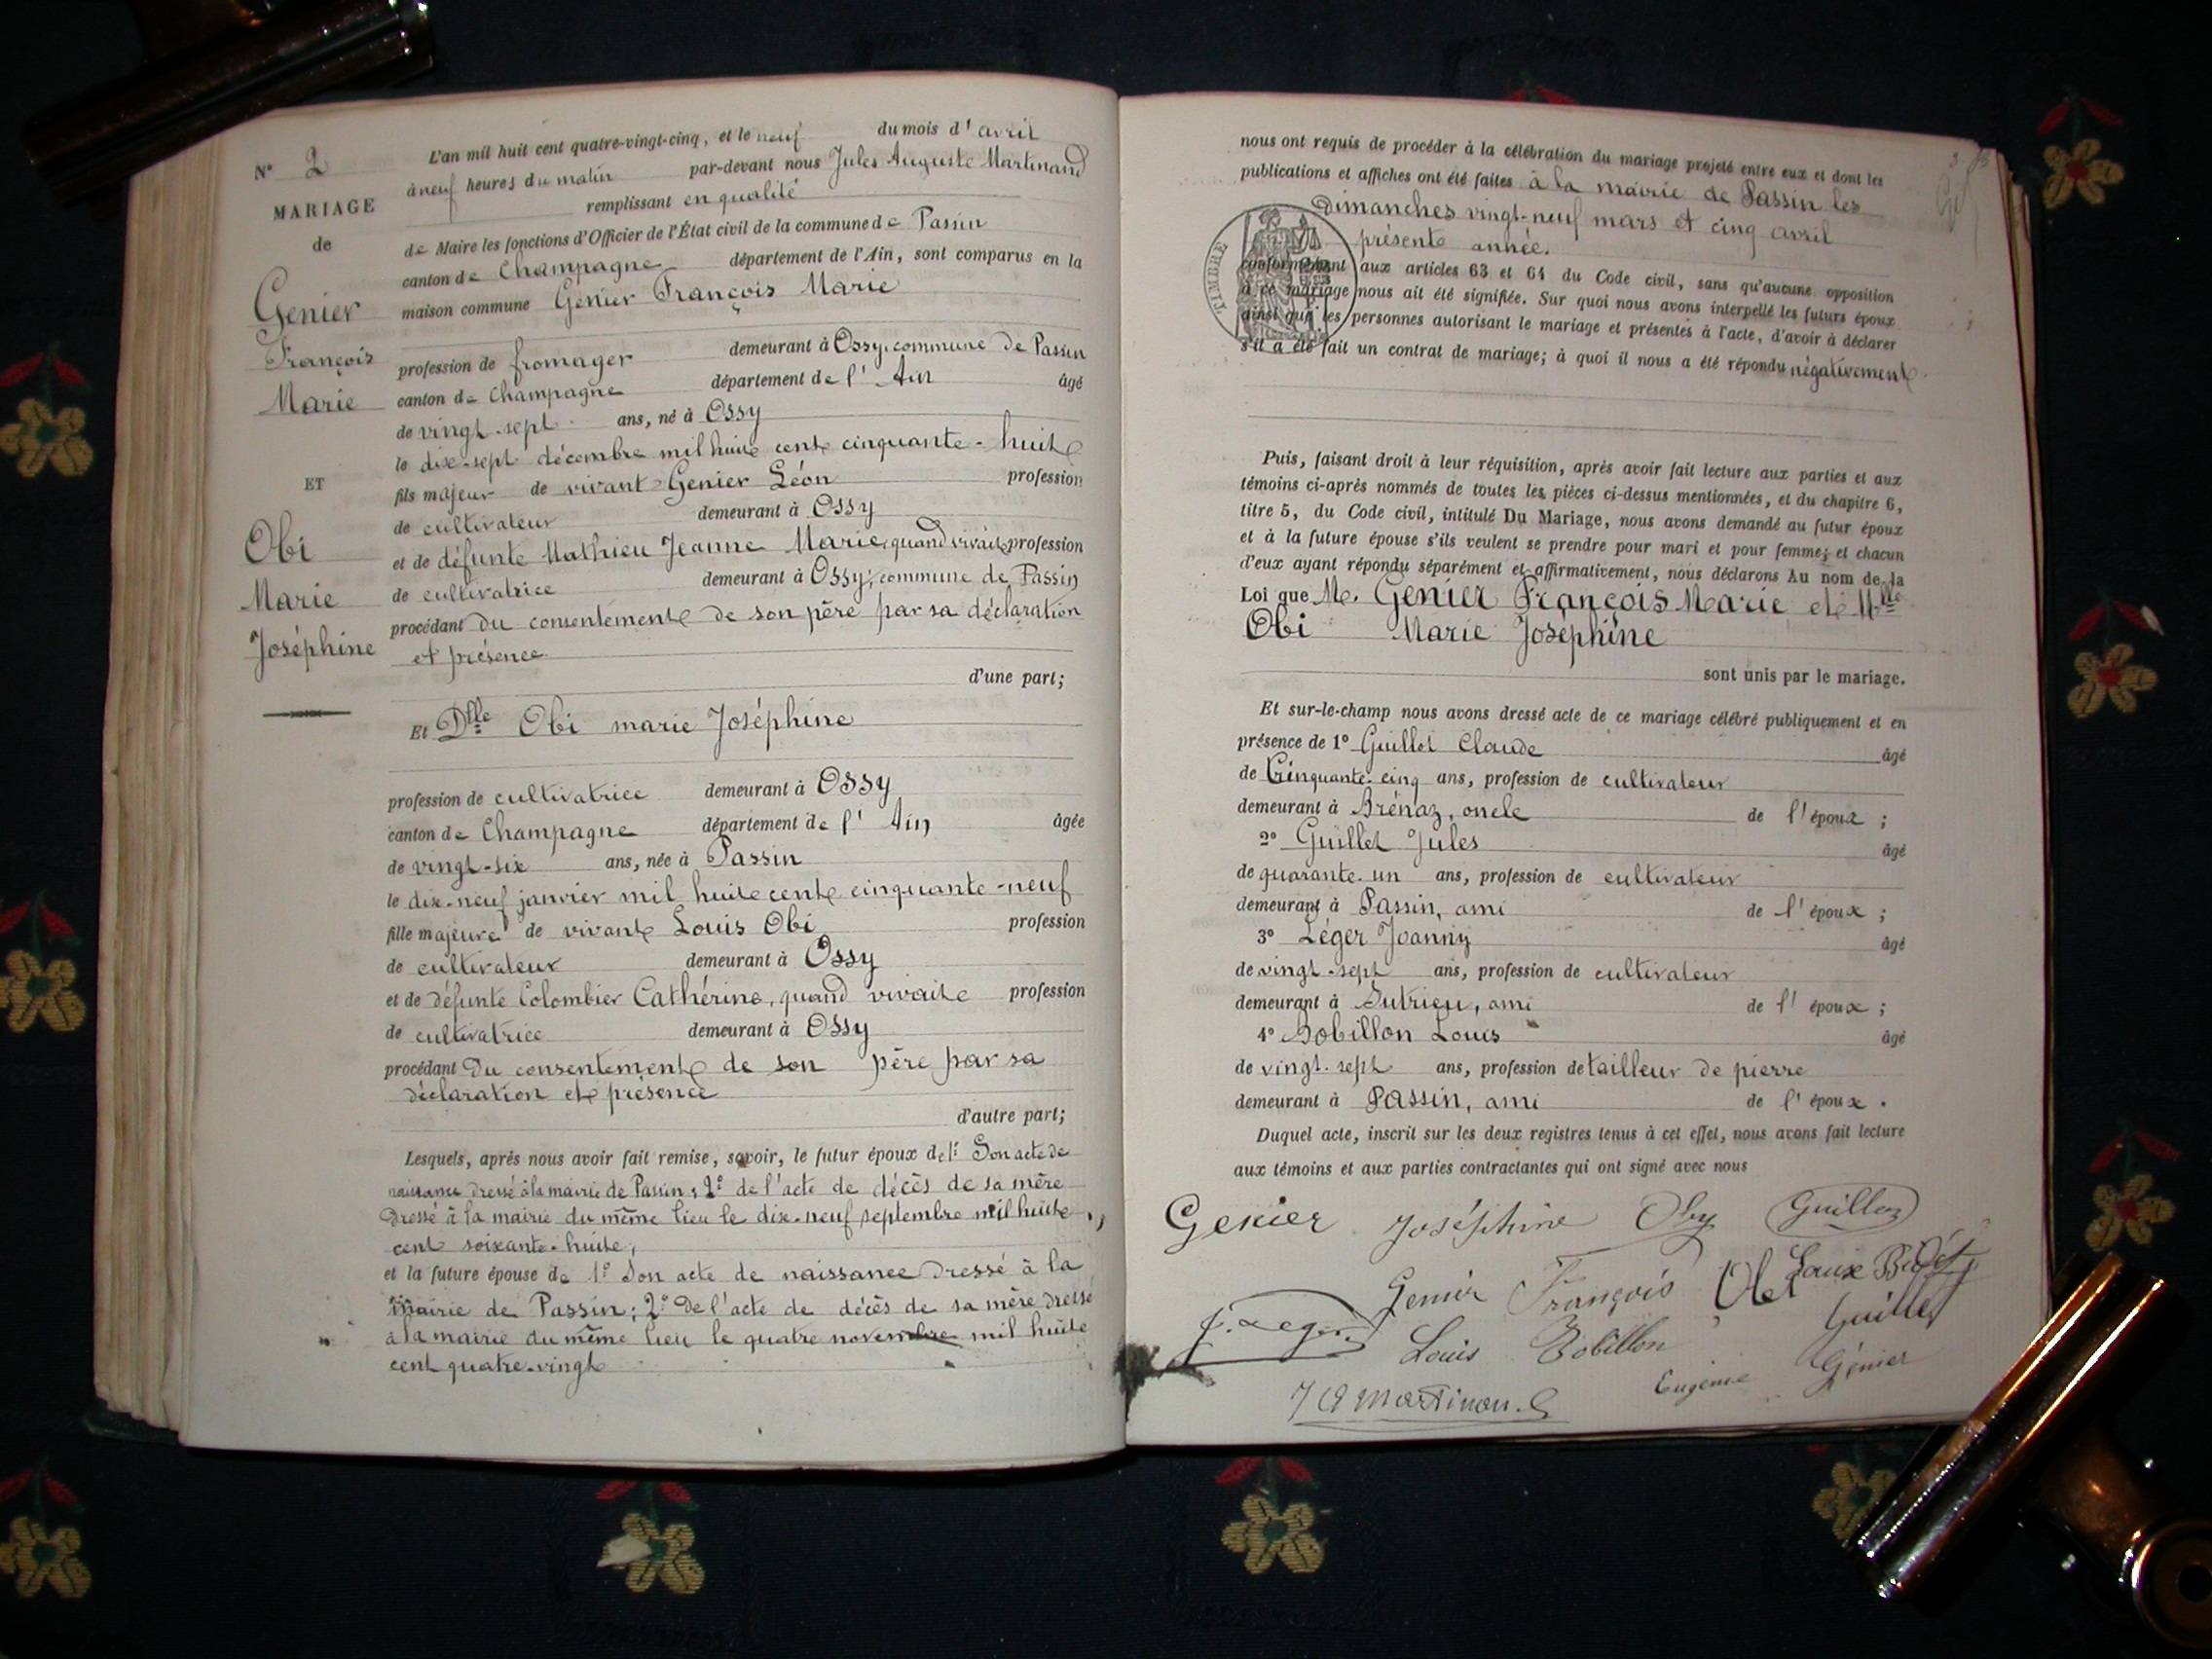 N° 2
MARIAGE
de
Genier
François
Marie
ET
Obi
Marie
Joséphine
L'an mil huit cent quatre-vingt-cinq, et le neuf du mois d'avril
à neuf heures du matin par-devant nous Jules Auguste Martinand
remplissant en qualité
de Maire les fonctions d'Officier de l'État civil de la commune de Passin
canton de Champagne département de l'Ain, sont comparus en la
maison commune Genier François Marie
profession de fromager demeurant à Ossy, commune de Passin
canton de Champagne département de l'Ain âgé
de vingt-sept ans, né à Ossy
le dix-sept décembre mil huit cent cinquante-huit
fils majeur de vivant Genier Léon profession
de cultivateur demeurant à Ossy
et de défunte Mathieu Jeanne Marie, quand vivait profession
de cultivatrice demeurant à Ossy, commune de Passin
procédant du consentement de son père par sa déclaration
et présence
d'une part;
Et Dlle Obi marie Joséphine
profession de cultivatrice demeurant à Ossy
canton de Champagne département de l'Ain âgée
de vingt-six ans, née à Passin
le dix-neuf janvier mil huit cent cinquante-neuf
fille majeure de vivant Louis Obi profession
de cultivateur demeurant à Ossy
et de défunte Colombier Cathérine, quand vivait profession
de cultivatrice demeurant à Ossy
procédant du consentement de son père par sa
déclaration et présence
d'autre part;
Lesquels, après nous avoir fait remise, savoir, le futur époux de 1° Son acte de
naissance dressé à la mairie de Passin; 2° de l'acte de décès de sa mère
dressé à la mairie du même lieu le dix-neuf septembre mil huit
cent soixante-huit,
et la future épouse de 1° Son acte de naissance dressé à la
mairie de Passin; 2° de l'acte de décès de sa mère dressé
à la mairie du même lieu le quatre novembre mil huit
cent quatre-vingt
nous ont requis de procéder à la célébration du mariage projeté entre eux et dont les
publications et affiches ont été faites à la mairie de Passin les
Dimanches vingt-neuf mars et cinq avril
présente année.
TIMBRE
conformément aux articles 63 et 64 du Code civil, sans qu'aucune opposition
à ce mariage nous ait été signifiée. Sur quoi nous avons interpellé les futurs époux
ainsi que les personnes autorisant le mariage et présentes à l'acte, d'avoir à déclarer
s'il a été fait un contrat de mariage; à quoi il nous a été répondu négativement.
Puis, faisant droit à leur réquisition, après avoir fait lecture aux parties et aux
témoins ci-après nommés de toutes les pièces ci-dessus mentionnées, et du chapitre 6,
titre 5, du Code civil, intitulé Du Mariage, nous avons demandé au futur époux
et à la future épouse s'ils veulent se prendre pour mari et pour femme; et chacun
d'eux ayant répondu séparément et affirmativement, nous déclarons Au nom de la
Loi que M. Genier François Marie et Mlle
Obi Marie Joséphine
sont unis par le mariage.
Et sur-le-champ nous avons dressé acte de ce mariage célébré publiquement et en
présence de 1° Guillet Claude âgé
de Cinquante-cinq ans, profession de cultivateur
demeurant à Brénaz, oncle de l'époux;
2° Guillet Jules âgé
de quarante-un ans, profession de cultivateur
demeurant à Passin, ami de l'époux;
3° Léger Joanny âgé
de vingt-sept ans, profession de cultivateur
demeurant à Sutrieu, ami de l'époux;
4° Bobillon Louis âgé
de vingt-sept ans, profession de tailleur de pierre
demeurant à Passin, ami de l'époux.
Duquel acte, inscrit sur les deux registres tenus à cet effet, nous avons fait lecture
aux témoins et aux parties contractantes qui ont signé avec nous
Genier Joséphine Oby Guillet
Genier François Louix
J. Leger Louis Bobillon Guillet
Eugénie Génier
J A Martinand